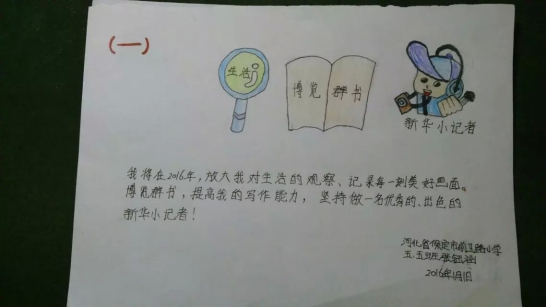 (一)
生活
博览 群书
新华小记者
我将在2016年，放大我对生活的观察、记录每一刻美好画面。
博览群书，提高我的写作能力，坚持做一名优秀的、出色的
新华小记者！
河北省保定市前卫路小学
五.五班
2016年1月1日